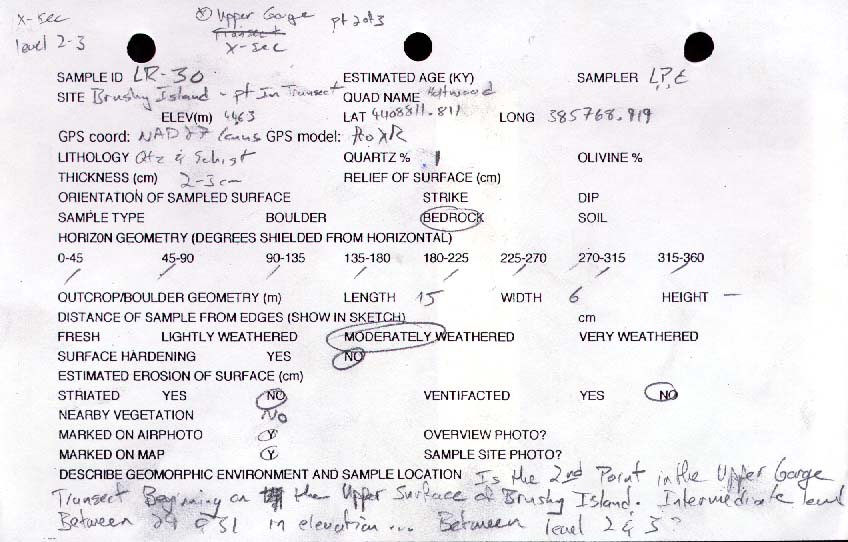 x-sec
level 2-3
Upper Gorge pt 2 of 3
Transect
x-sec
SAMPLE ID LR-30 ESTIMATED AGE (KY) SAMPLER
SITE Brushy Island - pt In Transect QUAD NAME Holtwood
ELEV(m) LAT 4408811.811 LONG 385768.919
GPS coord: NAD 27 GPS model: ProXR
LITHOLOGY Qtz & Schist QUARTZ % OLIVINE %
THICKNESS (cm) 2-3cm RELIEF OF SURFACE (cm)
ORIENTATION OF SAMPLED SURFACE STRIKE DIP
SAMPLE TYPE BOULDER BEDROCK SOIL
HORIZON GEOMETRY (DEGREES SHIELDED FROM HORIZONTAL)
0-45 45-90 90-135 135-180 180-225 225-270 270-315 315-360
OUTCROP/BOULDER GEOMETRY (m) LENGTH 15 WIDTH 6 HEIGHT —
DISTANCE OF SAMPLE FROM EDGES (SHOW IN SKETCH) cm
FRESH LIGHTLY WEATHERED MODERATELY WEATHERED VERY WEATHERED
SURFACE HARDENING YES NO
ESTIMATED EROSION OF SURFACE (cm)
STRIATED YES NO VENTIFACTED YES NO
NEARBY VEGETATION No
MARKED ON AIRPHOTO Y OVERVIEW PHOTO?
MARKED ON MAP Y SAMPLE SITE PHOTO?
DESCRIBE GEOMORPHIC ENVIRONMENT AND SAMPLE LOCATION Is the 2nd Point in the Upper Gorge
Transect Beginning on the Upper Surface of Brushy Island. Intermediate level
Between 29 & 31 in elevation... Between level 2 & 3?